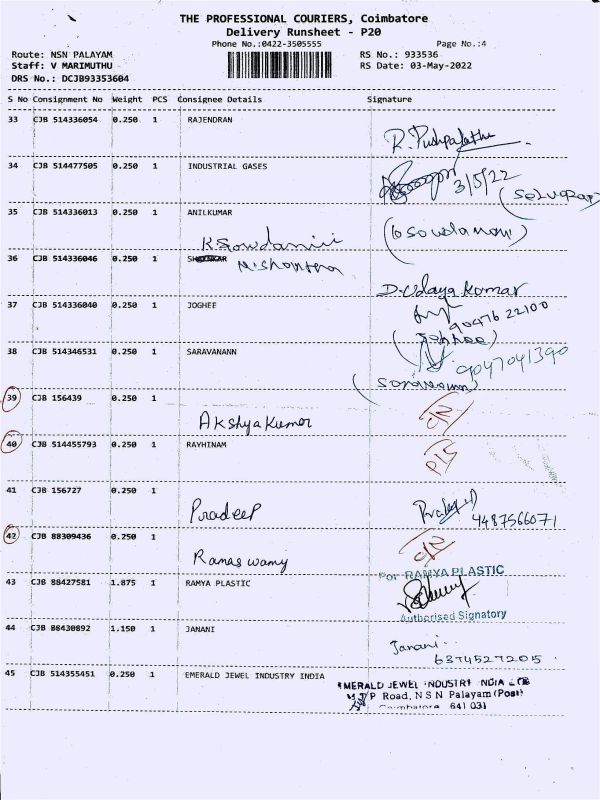 THE PROFESSIONAL COURIERS, Coimbatore
Delivery Runsheet - P20
Phone No.:0422-3505555 Page No.:4
Route: NSN PALAYAM RS No.: 933536
Staff: V MARIMUTHU RS Date: 03-May-2022
DRS No.: DCJB93353604
S No Consignment No Weight PCS Consignee Details Signature
33 CJB 514336054 0.250 1 RAJENDRAN
R. Pushpalatha
34 CJB 514477505 0.250 1 INDUSTRIAL GASES
3/5/22
35 CJB 514336013 0.250 1 ANILKUMAR
K Sowdamini
36 CJB 514336046 0.250 1
D. Udaya Kumar
37 CJB 514336040 0.250 1 JOGHEE
90476 22100
(Joghee)
38 CJB 514346531 0.250 1 SARAVANANN
9047041390
39 CJB 156439 0.250 1
Akshya Kumar
40 CJB 514455793 0.250 1 RAYHINAM
41 CJB 156727 0.250 1
Pradeep
4487566071
42 CJB 88309436 0.250 1
Ramaswamy
For RAMYA PLASTIC
43 CJB 88427581 1.875 1 RAMYA PLASTIC
Authorised Signatory
44 CJB 88430892 1.150 1 JANANI
Janani
6374527205
45 CJB 514355451 0.250 1 EMERALD JEWEL INDUSTRY INDIA
EMERALD JEWEL INDUSTRY INDIA LTD
P Road, N S N Palayam (Post)
Coimbatore 641 031